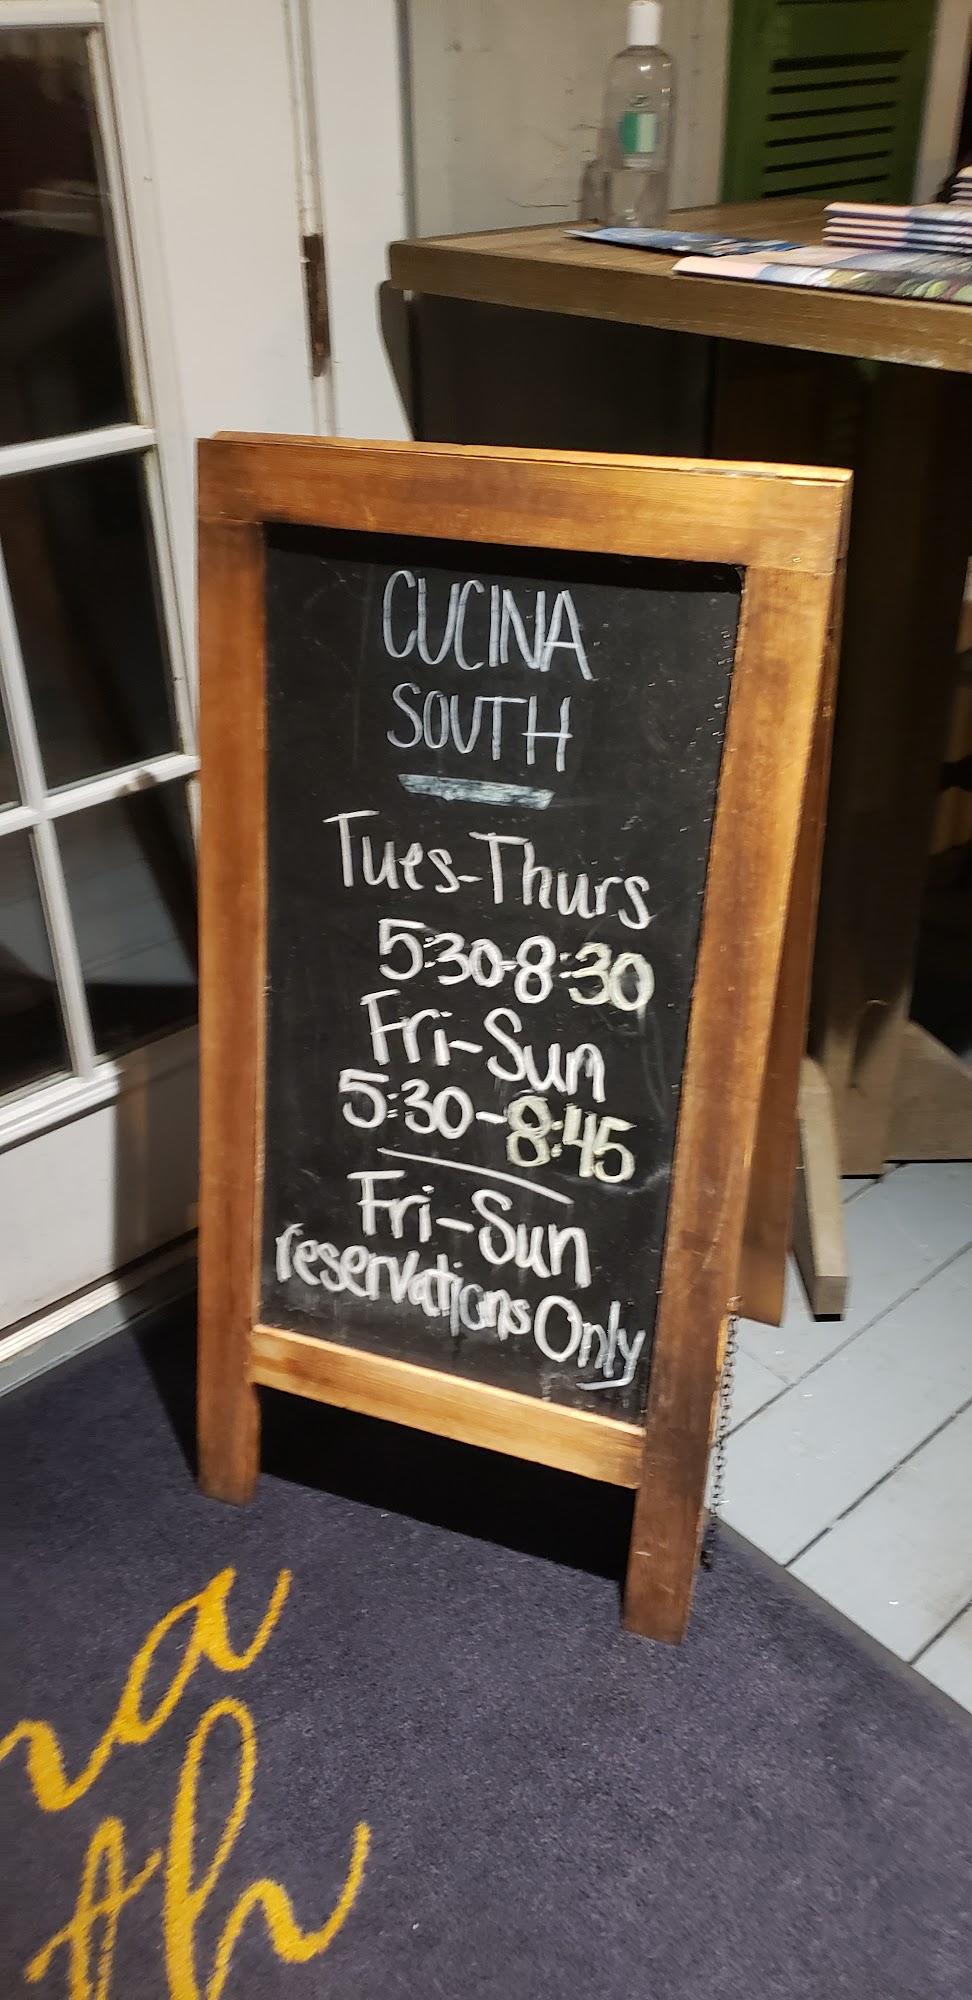 CUCINA
SOUTH
Tues-Thurs
5:30-8:30
Fri-Sun
5:30-8:45
Fri-Sun
reservations Only
na
th